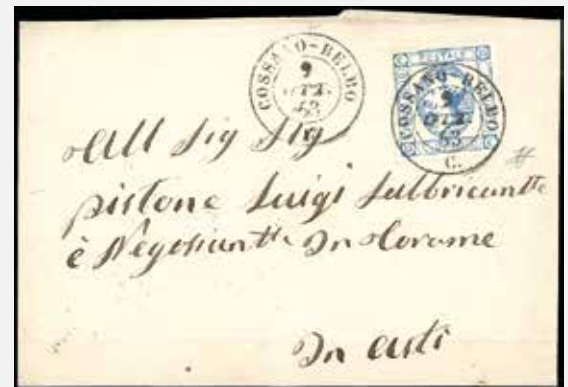 COSSANO-BELBO
9
OTT.
63
POSTALE
COSSANO-BELBO
9
OTT.
63
C.
All Sig Sig
pistone Luigi Fabbricante
è Negosiante In Corame
In Asti